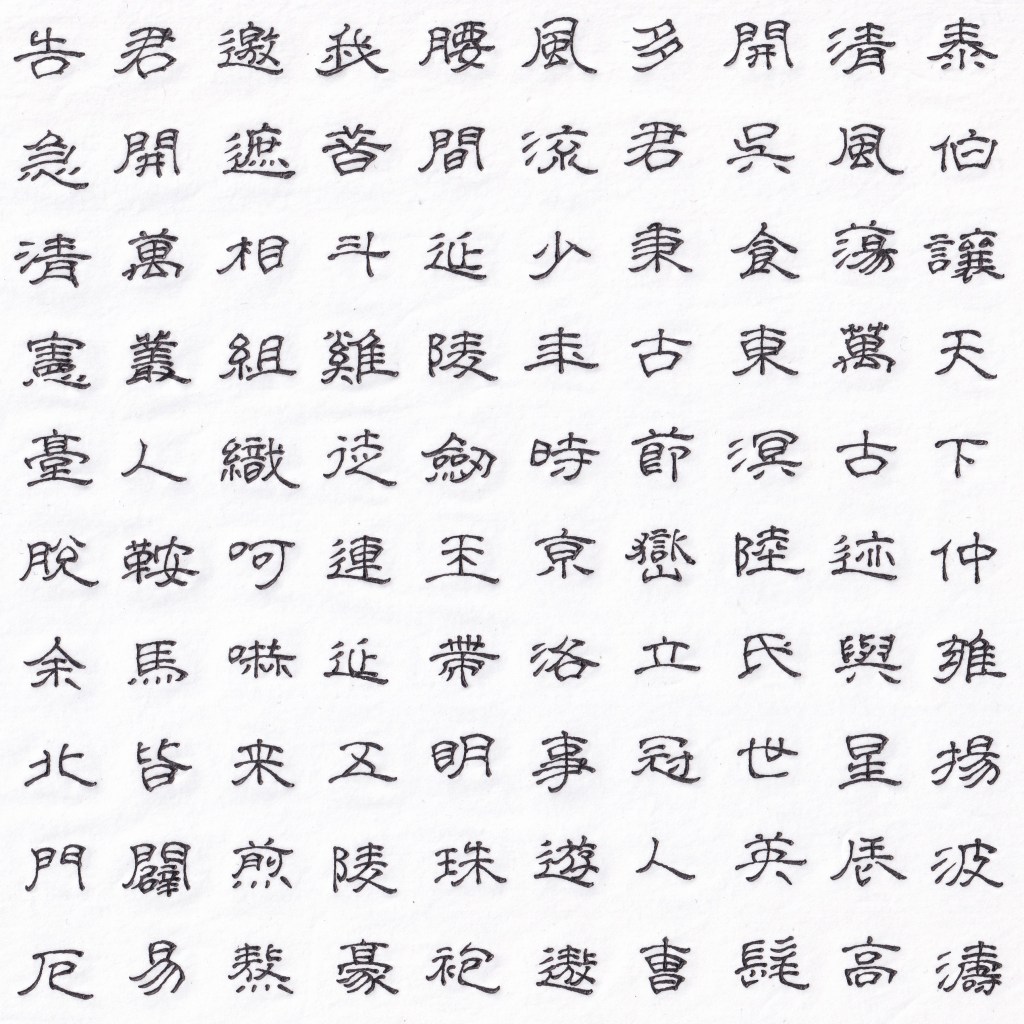 泰伯讓天下仲雍揚波濤
清風蕩萬古迹與星辰高
開吳食東溟陸氏世英髦
多君秉古節嶽立冠人曹
風流少年時京洛事遊遨
腰間延陵劒玉帶明珠袍
我昔斗雞徒連延五陵豪
邀遮相組織呵嚇来煎熬
君開萬叢人鞍馬皆闢易
告急清憲臺脫余北門厄